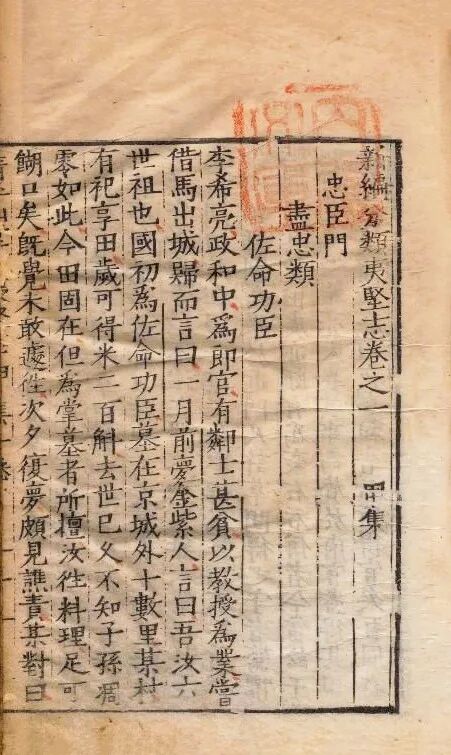 新編分類夷堅志卷之一 甲集
忠臣門
盡忠類
佐命功臣
李希亮政和中爲郎官有鄰士甚貧以教授爲業嘗
借馬出城歸而言曰一月前夢金紫人言曰吾汝六
世祖也國初爲佐命功臣墓在京城外十數里某村
有祀享田歲可得米二百斛去世已久不知子孫凋
零如此今田固在但為掌墓者所擅汝徃料理足可
餬口矣旣覺未敢遽徃次夕復夢頗見譙責某對曰